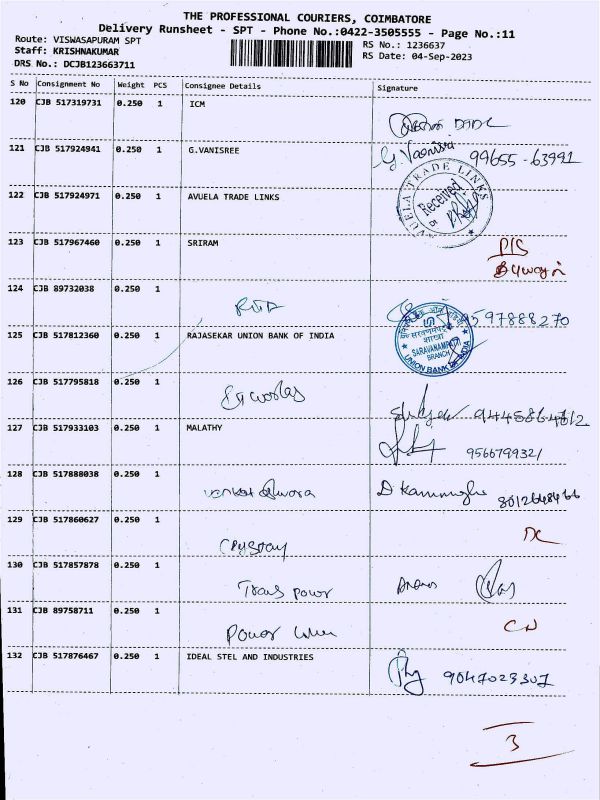 THE PROFESSIONAL COURIERS, COIMBATORE
Delivery Runsheet - SPT - Phone No.:0422-3505555 - Page No.:11
Route: VISWASAPURAM SPT
Staff: KRISHNAKUMAR
DRS No.: DCJB123663711
RS No.: 1236637
RS Date: 04-Sep-2023
S No Consignment No Weight PCS Consignee Details Signature
120 CJB 517319731 0.250 1 ICM
121 CJB 517924941 0.250 1 G.VANISREE G. Vanisree 99655-63991
122 CJB 517924971 0.250 1 AVUELA TRADE LINKS
AVUELA TRADE LINKS
Received
123 CJB 517967460 0.250 1 SRIRAM
124 CJB 89732038 0.250 1
9597888270
125 CJB 517812360 0.250 1 RAJASEKAR UNION BANK OF INDIA
SARAVANAMPATTI
BRANCH
UNION BANK OF INDIA
126 CJB 517795818 0.250 1
127 CJB 517933103 0.250 1 MALATHY
956679932/
128 CJB 517888038 0.250 1
129 CJB 517860627 0.250 1
DC
130 CJB 517857878 0.250 1 Trans power
131 CJB 89758711 0.250 1 Power
132 CJB 517876467 0.250 1 IDEAL STEL AND INDUSTRIES 9047023307
3